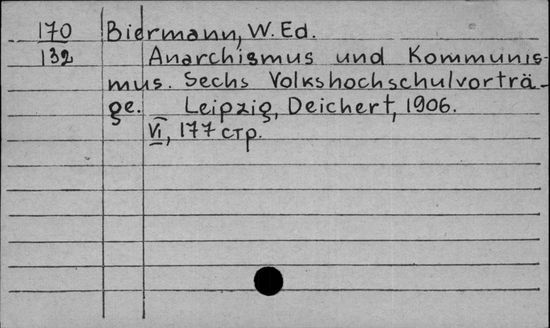 170 Biermann, W. Ed.
132 Anarchismus und Kommunis-
mus. Sechs Volkshochschulvorträ-
ge. Leipzig, Deichert, 1906.
VI, 177 стр.